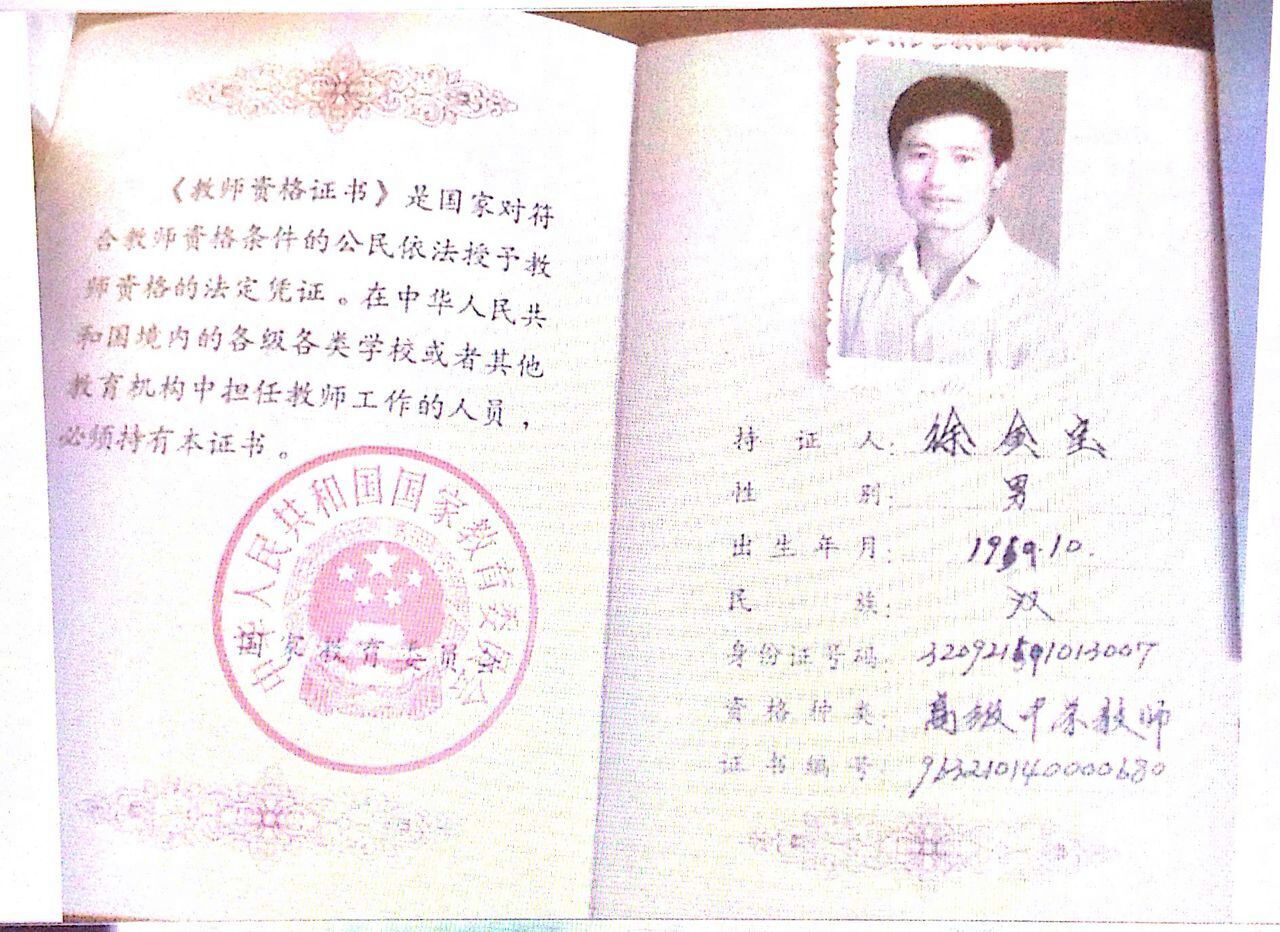 《教师资格证书》是国家对符
合教师资格条件的公民依法授予教
师资格的法定凭证。在中华人民共
和国境内的各级各类学校或者其他
教育机构中担任教师工作的人员，
必须持有本证书。
人民共和国国家教育委
国家教育委员
持证人：徐金
性别：男
出生年月：
民族：汉
身份证号码：
资格种类：高级中学教师
证书编号：963210140000680